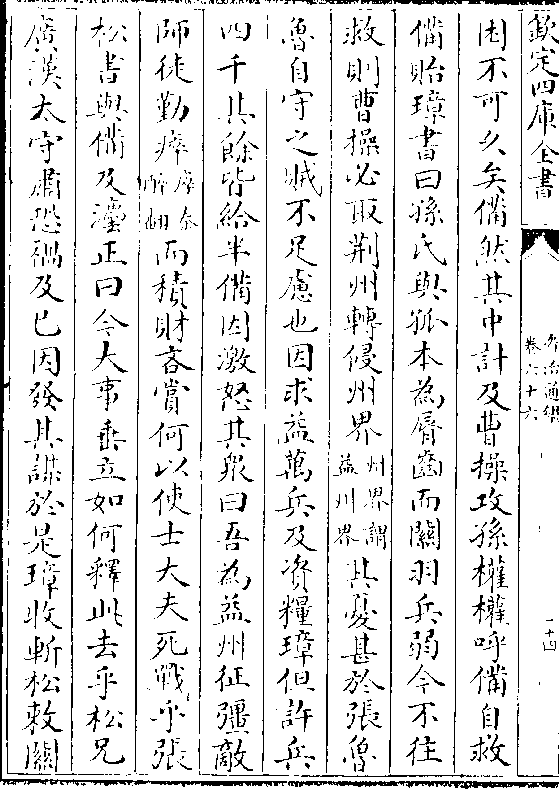 欽定四庫全書
資治通鑑
卷六十六
十四
困不可久矣備然其中計及曹操攻孫權權呼備自救
備貽璋書曰孫氏與孤本為脣齒而關羽兵弱今不往
救則曹操必取荆州轉侵州界州界謂益州界其憂甚於張魯
魯自守之賊不足慮也因求益萬兵及資糧璋但許兵
四千其餘皆給半備因激怒其衆曰吾為益州征彊敵
師徒勤瘁瘁秦醉翻而積財吝賞何以使士大夫死戰乎張
松書與備及灋正曰今大事垂立如何釋此去乎松兄
廣漢太守肅恐禍及已因發其謀於是璋收斬松敕關